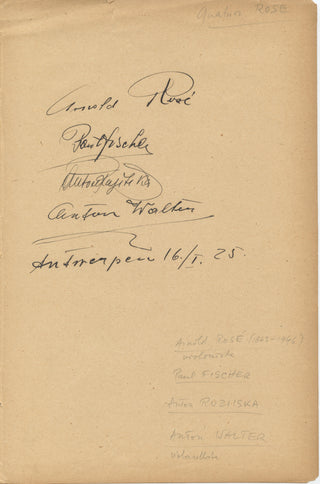 Quatuor ROSÉ
Arnold Rosé
Paul Fischer
Anton Ružitska
Anton Walter
Antwerpen 16./I. 25.
Arnold ROSÉ (1863-1946)
violoniste
Paul FISCHER
Anton RUZITSKA
Anton WALTER
violoncelliste